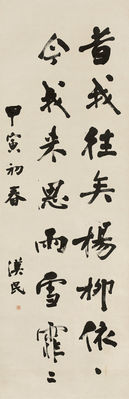 昔我往矣楊柳依、
今我来思雨雪霏〻
甲寅初春
漢民